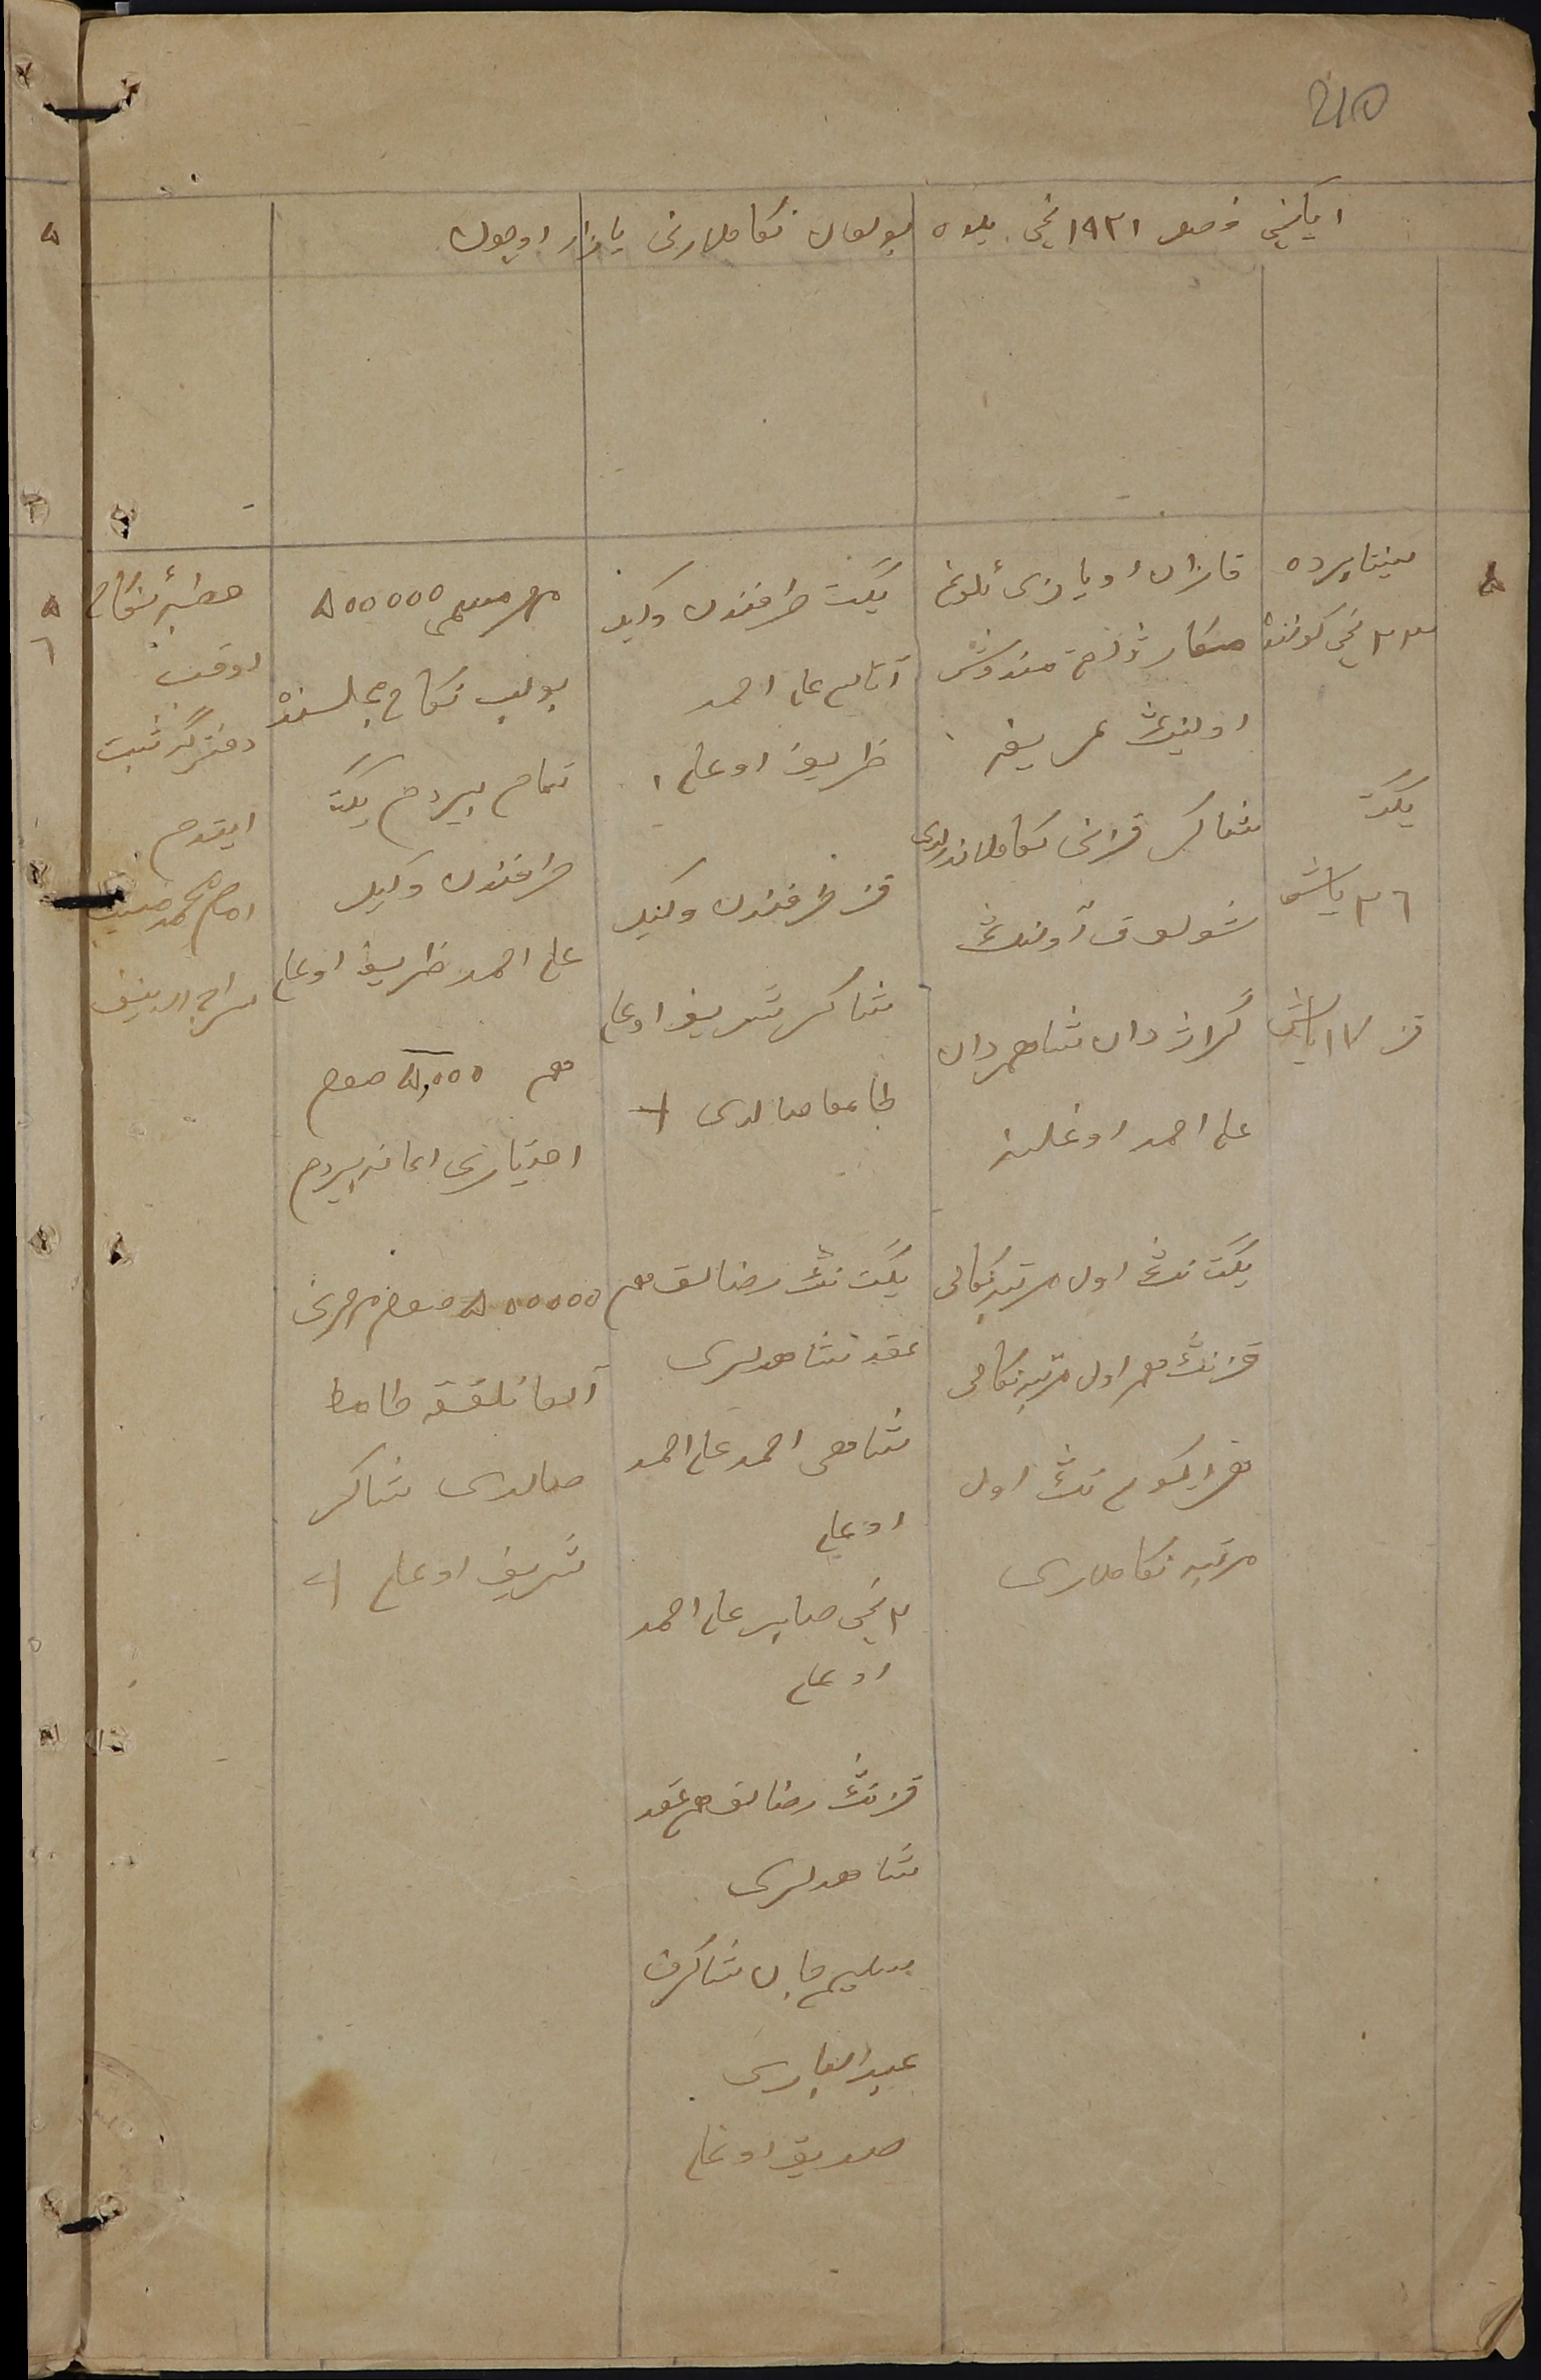 210
ایکنچی فصل ۱۹۲۱ نچی یلده بولغان نکاحلارنی یازار اوچون
۵
سینتابرده
۲۳ نچی کوننده
یگت
۲٦ یاشی
قز ۱۷ یاشی
قازان اویازی
اولینڭ
شاکر قزنی نکاحلاندردی
شولوق آولنڭ
شاهمردان
علی احمد اوغلینه
یگت نڭ اول مرتبه نکاحی
قزنڭ هم اول مرتبه نکاحی
هر ایکوسی نڭ اول
مرتبه نکاحلاری
یگت طرفندن وکیل
آتاسی علی احمد
ظریف اوغلی
قز طرفندن وکیل
شاکر شریف اوغلی
طامغا صالدی
یگت نڭ رضالق هم
عقد شاهدلری
شاهی احمد علی احمد
اوغلی
۲ نچی صابر علی احمد
اوغلی
قزنڭ رضالق هم عقد
شاهدلری
سلیم جان شاکرف
عبدالباری
صدیق اوغلی
مهر مسمی ۵۰۰۰۰۰
بولیب نکاح مجلسنده
تمام بیردم یگت
طرفندن وکیل
علی احمد ظریف اوغلی
هم ۵,۰۰۰ صوم
اختیاری اعانه بیردم
۵۰۰۰۰۰ صوم مهرنی
آلغانلققه طامغا
صالدی شاکر
شریف اوغلی
خطبهٔ نکاح
اوقب
دفترگه ثبت
ایتدم
امام محمد
سراج الدینف
۵
۵
٦